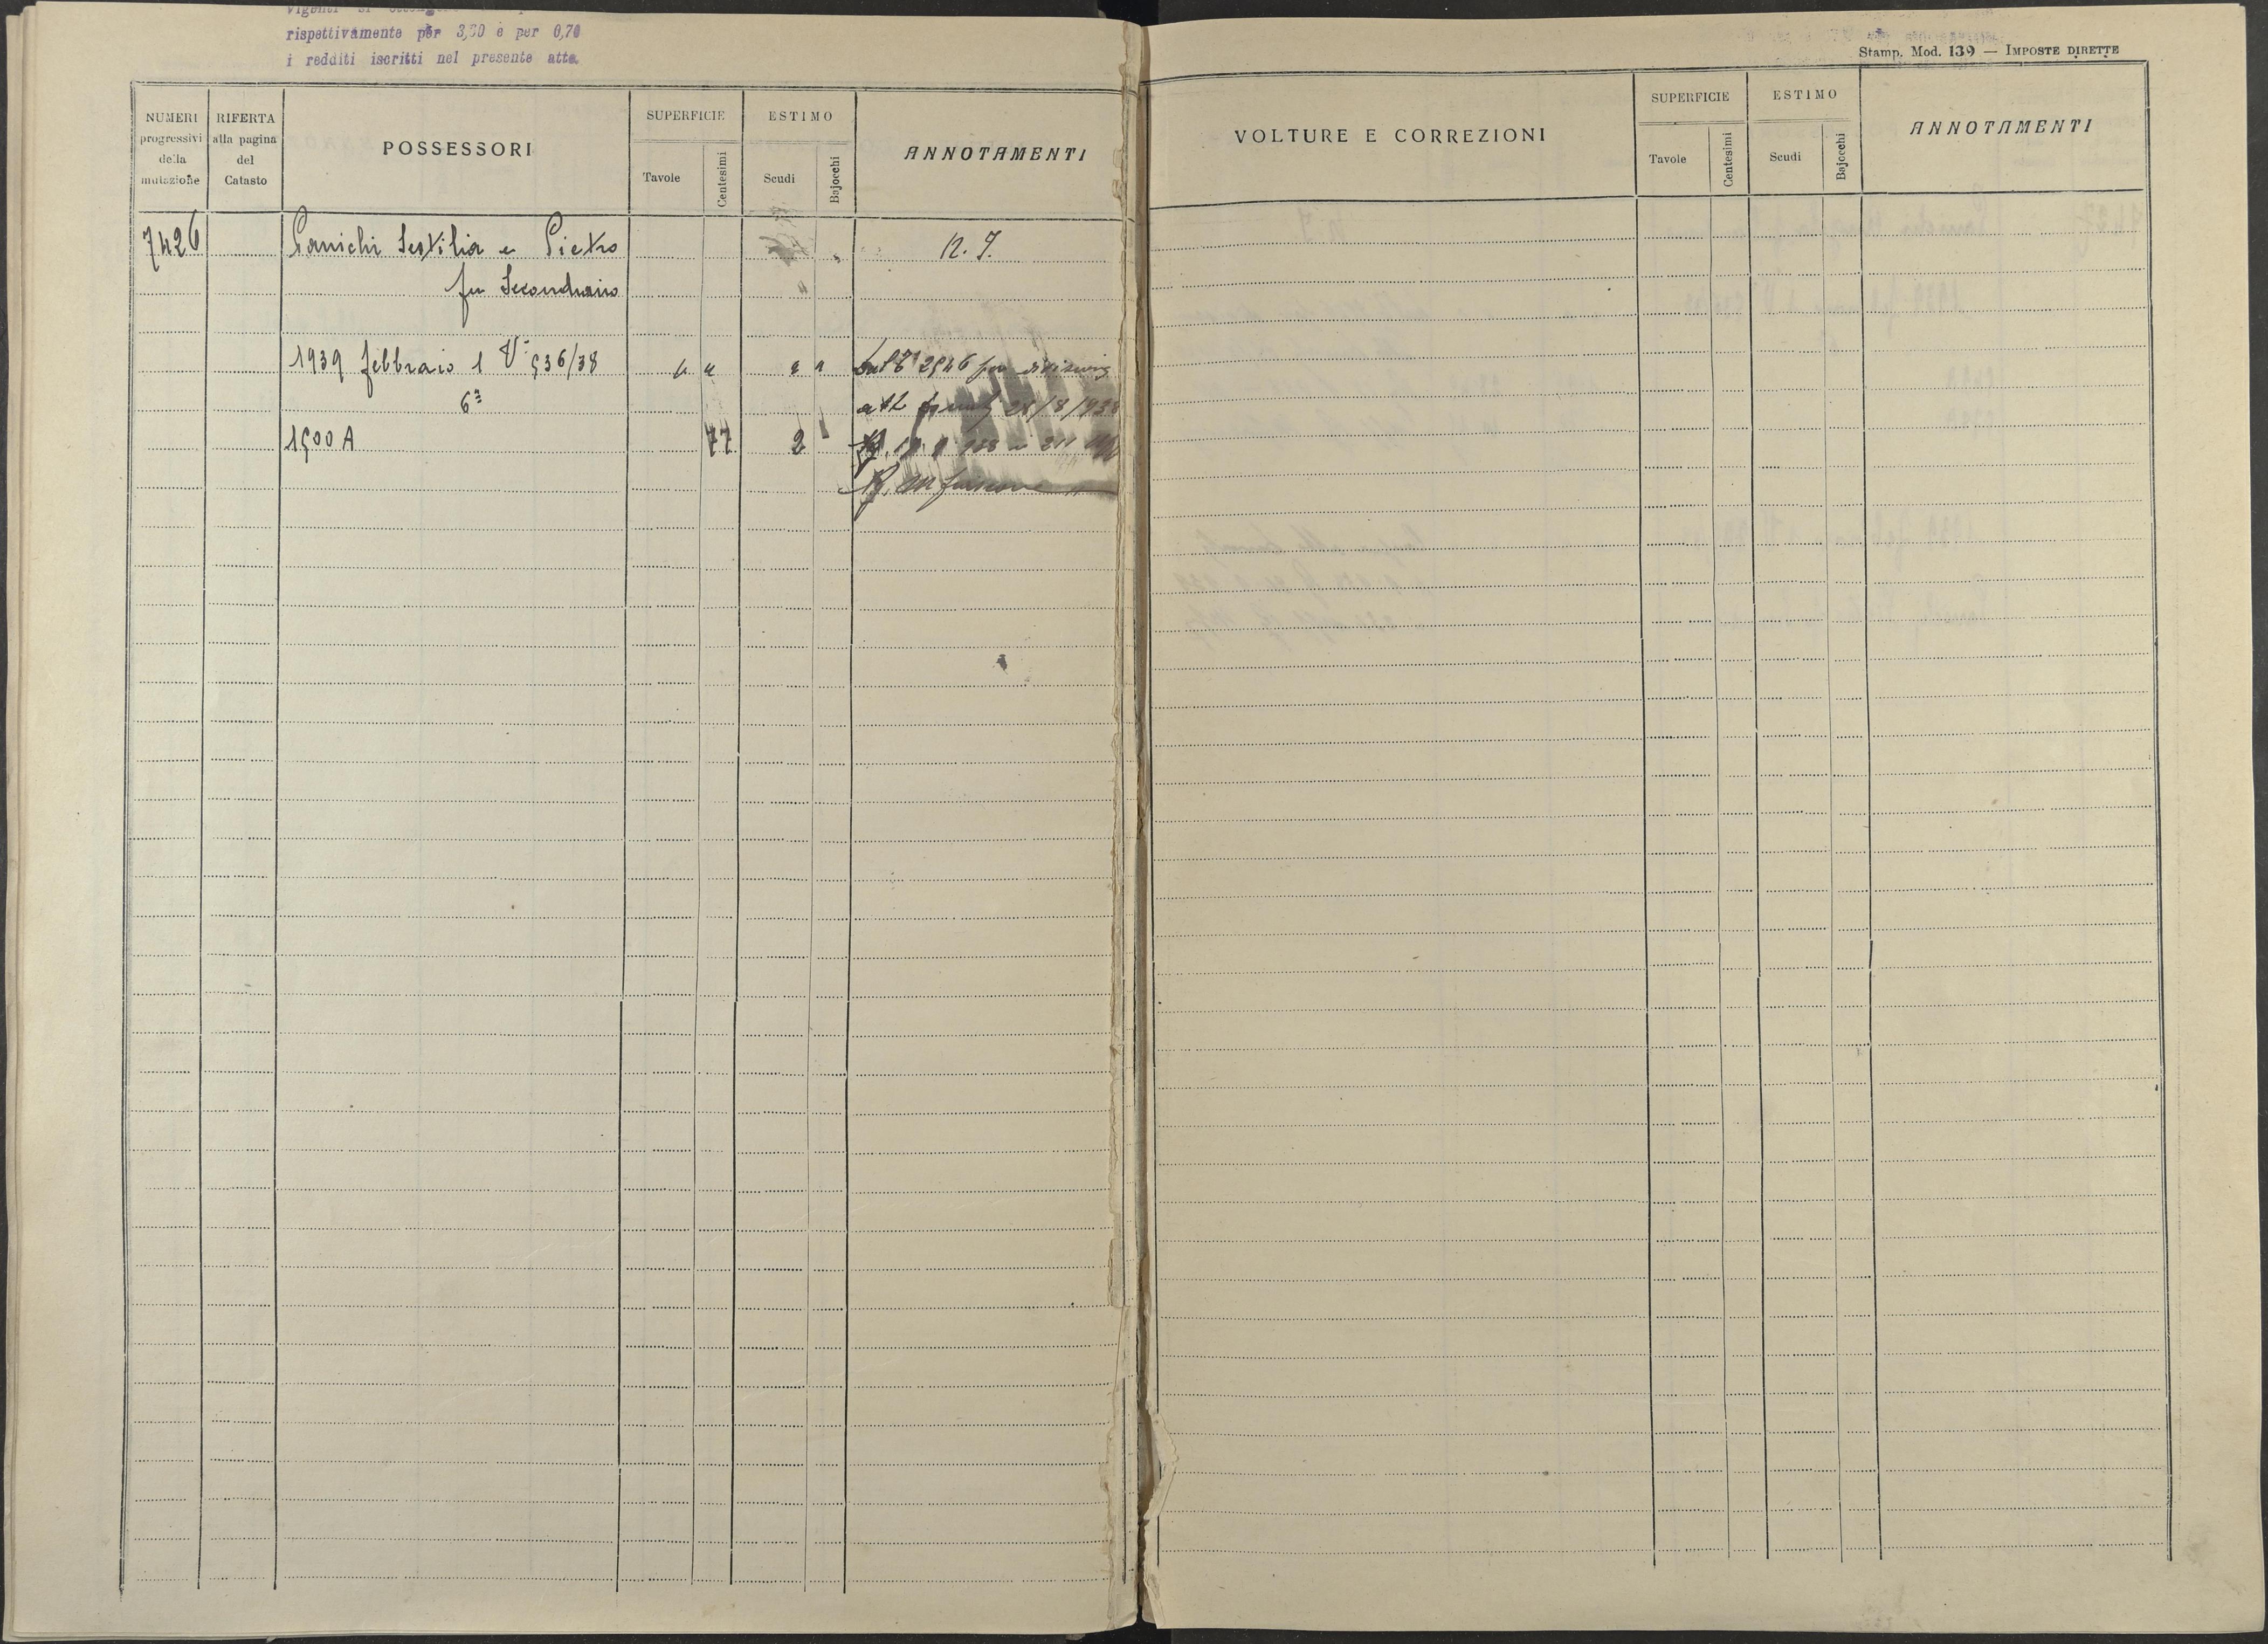 rispettivamente per 3,50 e per 0,70
i redditi iscritti nel presente atto.
NUMERI progressivi della mutazione
RIFERTA alla pagina del Catasto
POSSESSORI
SUPERFICIE
Tavole
Centesimi
ESTIMO
Scudi
Bajocchi
ANNOTAMENTI
7426 Panichi Sestilia e Pietro n. 7.
fu Secondiano
1939 febbraio 1 V: 536/38 " " " " dal 2546 per divisione
6
1500 A 77 2
Stamp. Mod. 139 — IMPOSTE DIRETTE
VOLTURE E CORREZIONI
SUPERFICIE
Tavole
Centesimi
ESTIMO
Scudi
Bajocchi
ANNOTAMENTI